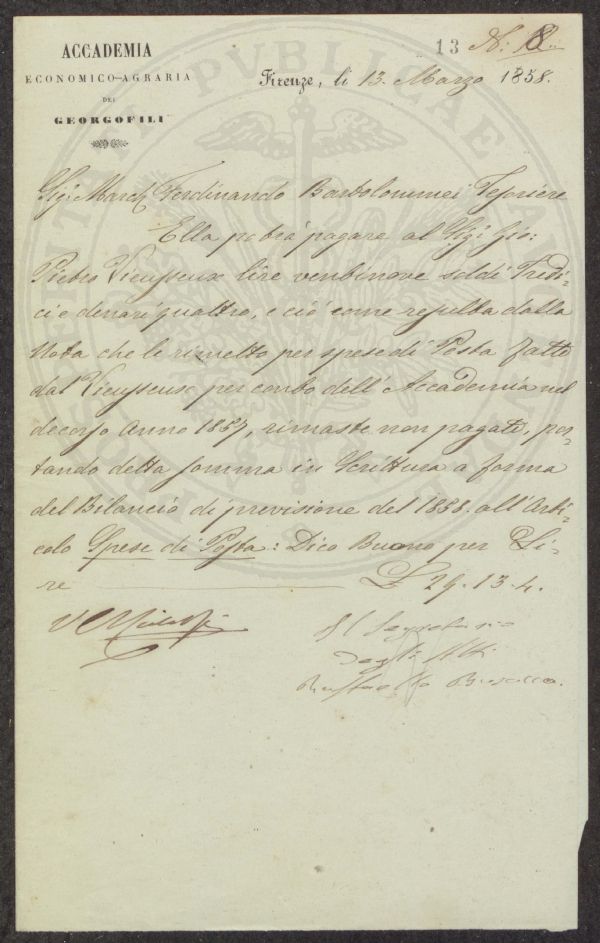 ACCADEMIA
ECONOMICO-AGRARIA
DEI
GEORGOFILI
13 N: 8
Firenze, li 13. Marzo 1858.
PROSPERITATI PVBLICAE AVGENDAE
Sig: March. Ferdinando Bartolommei Tesoriere
Ella potrà pagare al Sig: Gio:
Pietro Vieusseux lire ventinove soldi Tredi-
ci e denari quattro, e ciò come resulta dalla
Nota che le rimetto per spese di Posta fatte
dal Vieusseux per conto dell'Accademia nel
decorso Anno 1857, rimaste non pagate, por-
tando detta somma in Scrittura a forma
del Bilancio di previsione del 1858. all'Arti-
colo Spese di Posta: Dico Buono per Li-
re L 29. 13. 4.
Il Segretario
degli Atti